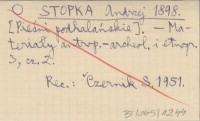 O STOPKA Andrzej 1898.
[Pieśni podhalańskie]. — Ma-
teriały antrop.-archeol. i etnogr.
3, cz. 2.
Rec.: Czernik S. 1951.